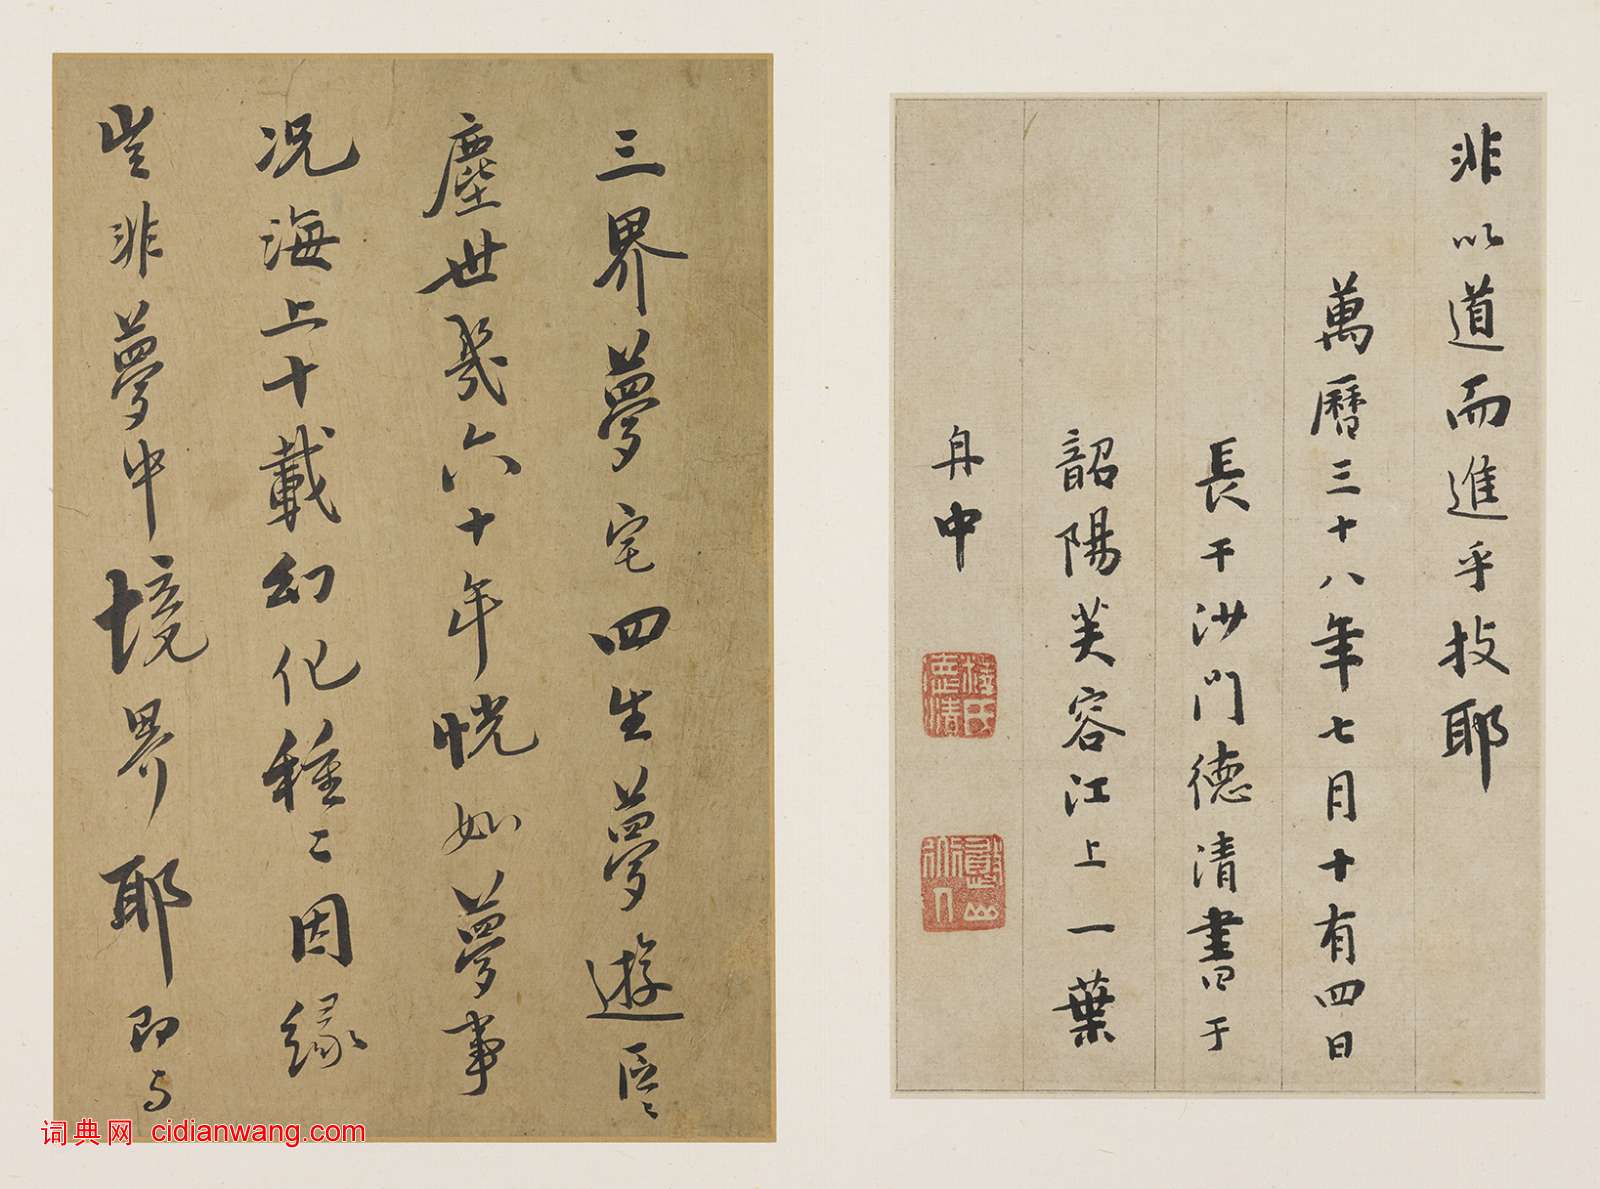 非以道而進乎技耶
萬曆三十八年七月十有四日
長干沙門德清書于
韶陽芙容江上一葉
舟中
憨山
三界夢宅四生夢遊區區
塵世幾六十年恍如夢事
况海上十載幻化種種因緣
豈非夢中境界耶即今
词典网 cidianwang.com